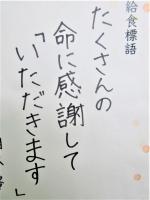 給食標語
たくさんの
命に感謝して
「いただきます」